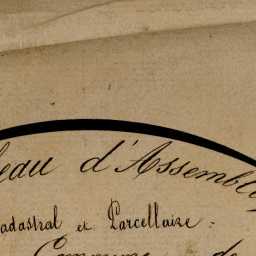 leau d'Assembla
adastral et Parcellaire.
Commune de